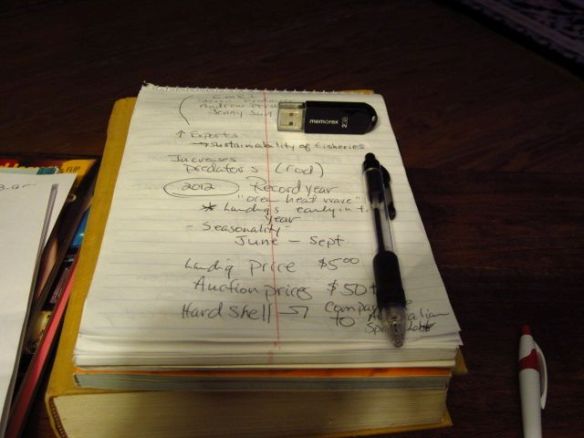 Andrew
Jenny Sun
↑ Exports
→ sustainability of fisheries
Increases
predators (cod)
2012 Record year
"ocean heat wave"
* Landings early in t
year
- Seasonality -
June - Sept
Landig Price $5.00
Auction prices $50
Hard shell → compa
to Australian
Sp
memorex
2GB